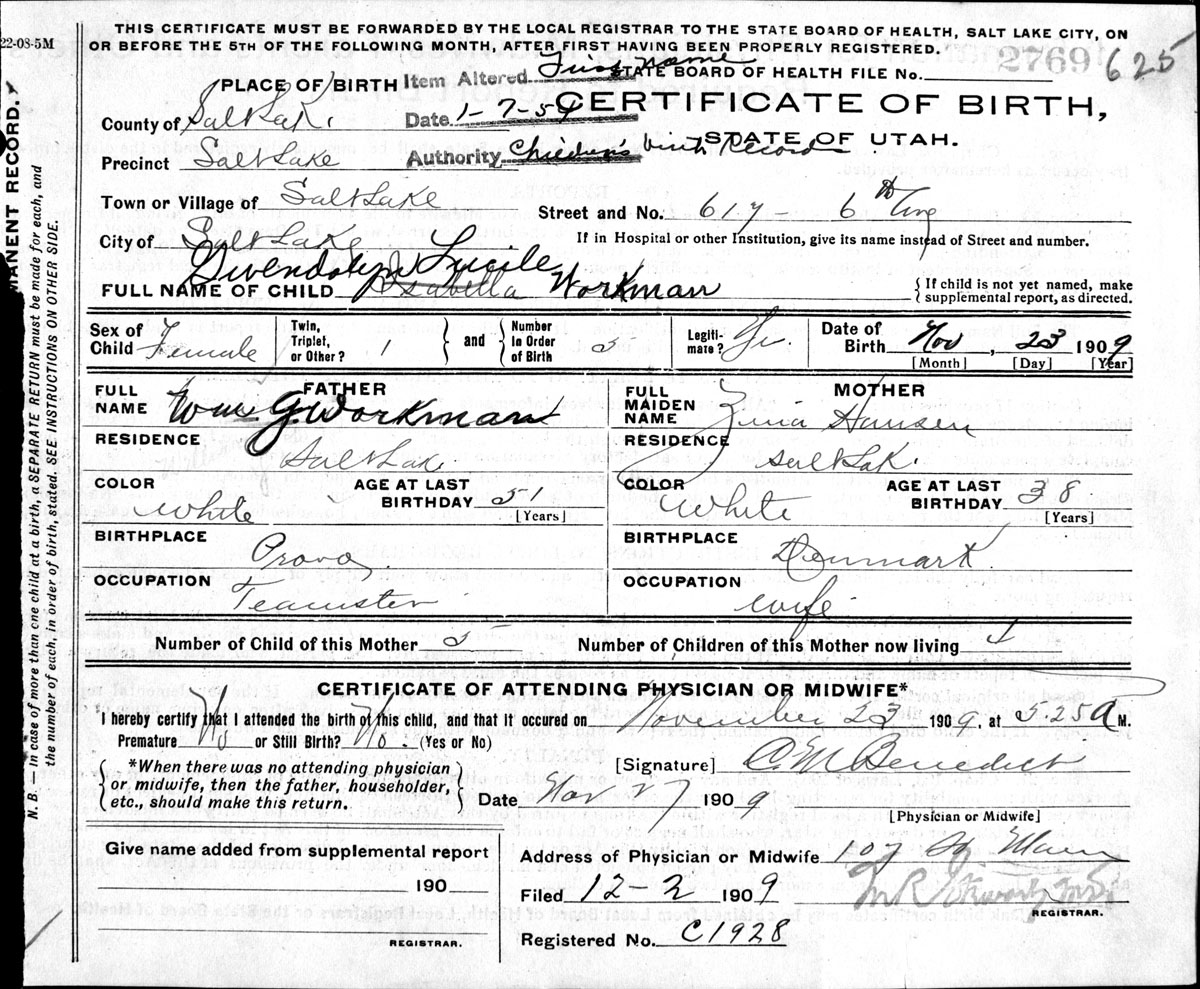 THIS CERTIFICATE MUST BE FORWARDED BY THE LOCAL REGISTRAR TO THE STATE BOARD OF HEALTH, SALT LAKE CITY, ON
OR BEFORE THE 5TH OF THE FOLLOWING MONTH, AFTER FIRST HAVING BEEN PROPERLY REGISTERED.
22-08-5M
PLACE OF BIRTH Item Altered First Name STATE BOARD OF HEALTH FILE No. 2769 625
County of Salt Lak. Date 1-7-59 CERTIFICATE OF BIRTH,
STATE OF UTAH.
Precinct Salt Lake Authority Children's birth Records
Town or Village of Salt Lake Street and No. 617 - 6th
City of Salt Lake If in Hospital or other Institution, give its name instead of Street and number.
Gwendolyn Lucile
FULL NAME OF CHILD Isabella Workman { If child is not yet named, make supplemental report, as directed.
Sex of Child Female Twin, Triplet, or Other? 1 } and { Number In Order of Birth 5 Legiti-mate? Date of Birth Nov, 23 1909
[Month] [Day] [Year]
FATHER MOTHER
FULL NAME Wm G Workman FULL MAIDEN NAME Zina Hansen
RESIDENCE Salt Lak RESIDENCE Salt Lak.
COLOR White AGE AT LAST BIRTHDAY 51 [Years] COLOR White AGE AT LAST BIRTHDAY 38 [Years]
BIRTHPLACE Provo BIRTHPLACE Denmark
OCCUPATION Teamster OCCUPATION wife
Number of Child of this Mother 5 Number of Children of this Mother now living 4
CERTIFICATE OF ATTENDING PHYSICIAN OR MIDWIFE*
I hereby certify that I attended the birth of this child, and that it occured on November 23 1909, at 5.25 A M.
Premature No or Still Birth? No. (Yes or No)
[Signature] C M Benedict
{ *When there was no attending physician
or midwife, then the father, householder,
etc., should make this return. }
Date Nov 27 1909
[Physician or Midwife]
Give name added from supplemental report
190
REGISTRAR.
Address of Physician or Midwife 107 So. Main
Filed 12-2 1909
REGISTRAR.
Registered No. C1928
MANENT RECORD.
N. B. — In case of more than one child at a birth, a SEPARATE RETURN must be made for each, and
the number of each, in order of birth, stated. SEE INSTRUCTIONS ON OTHER SIDE.